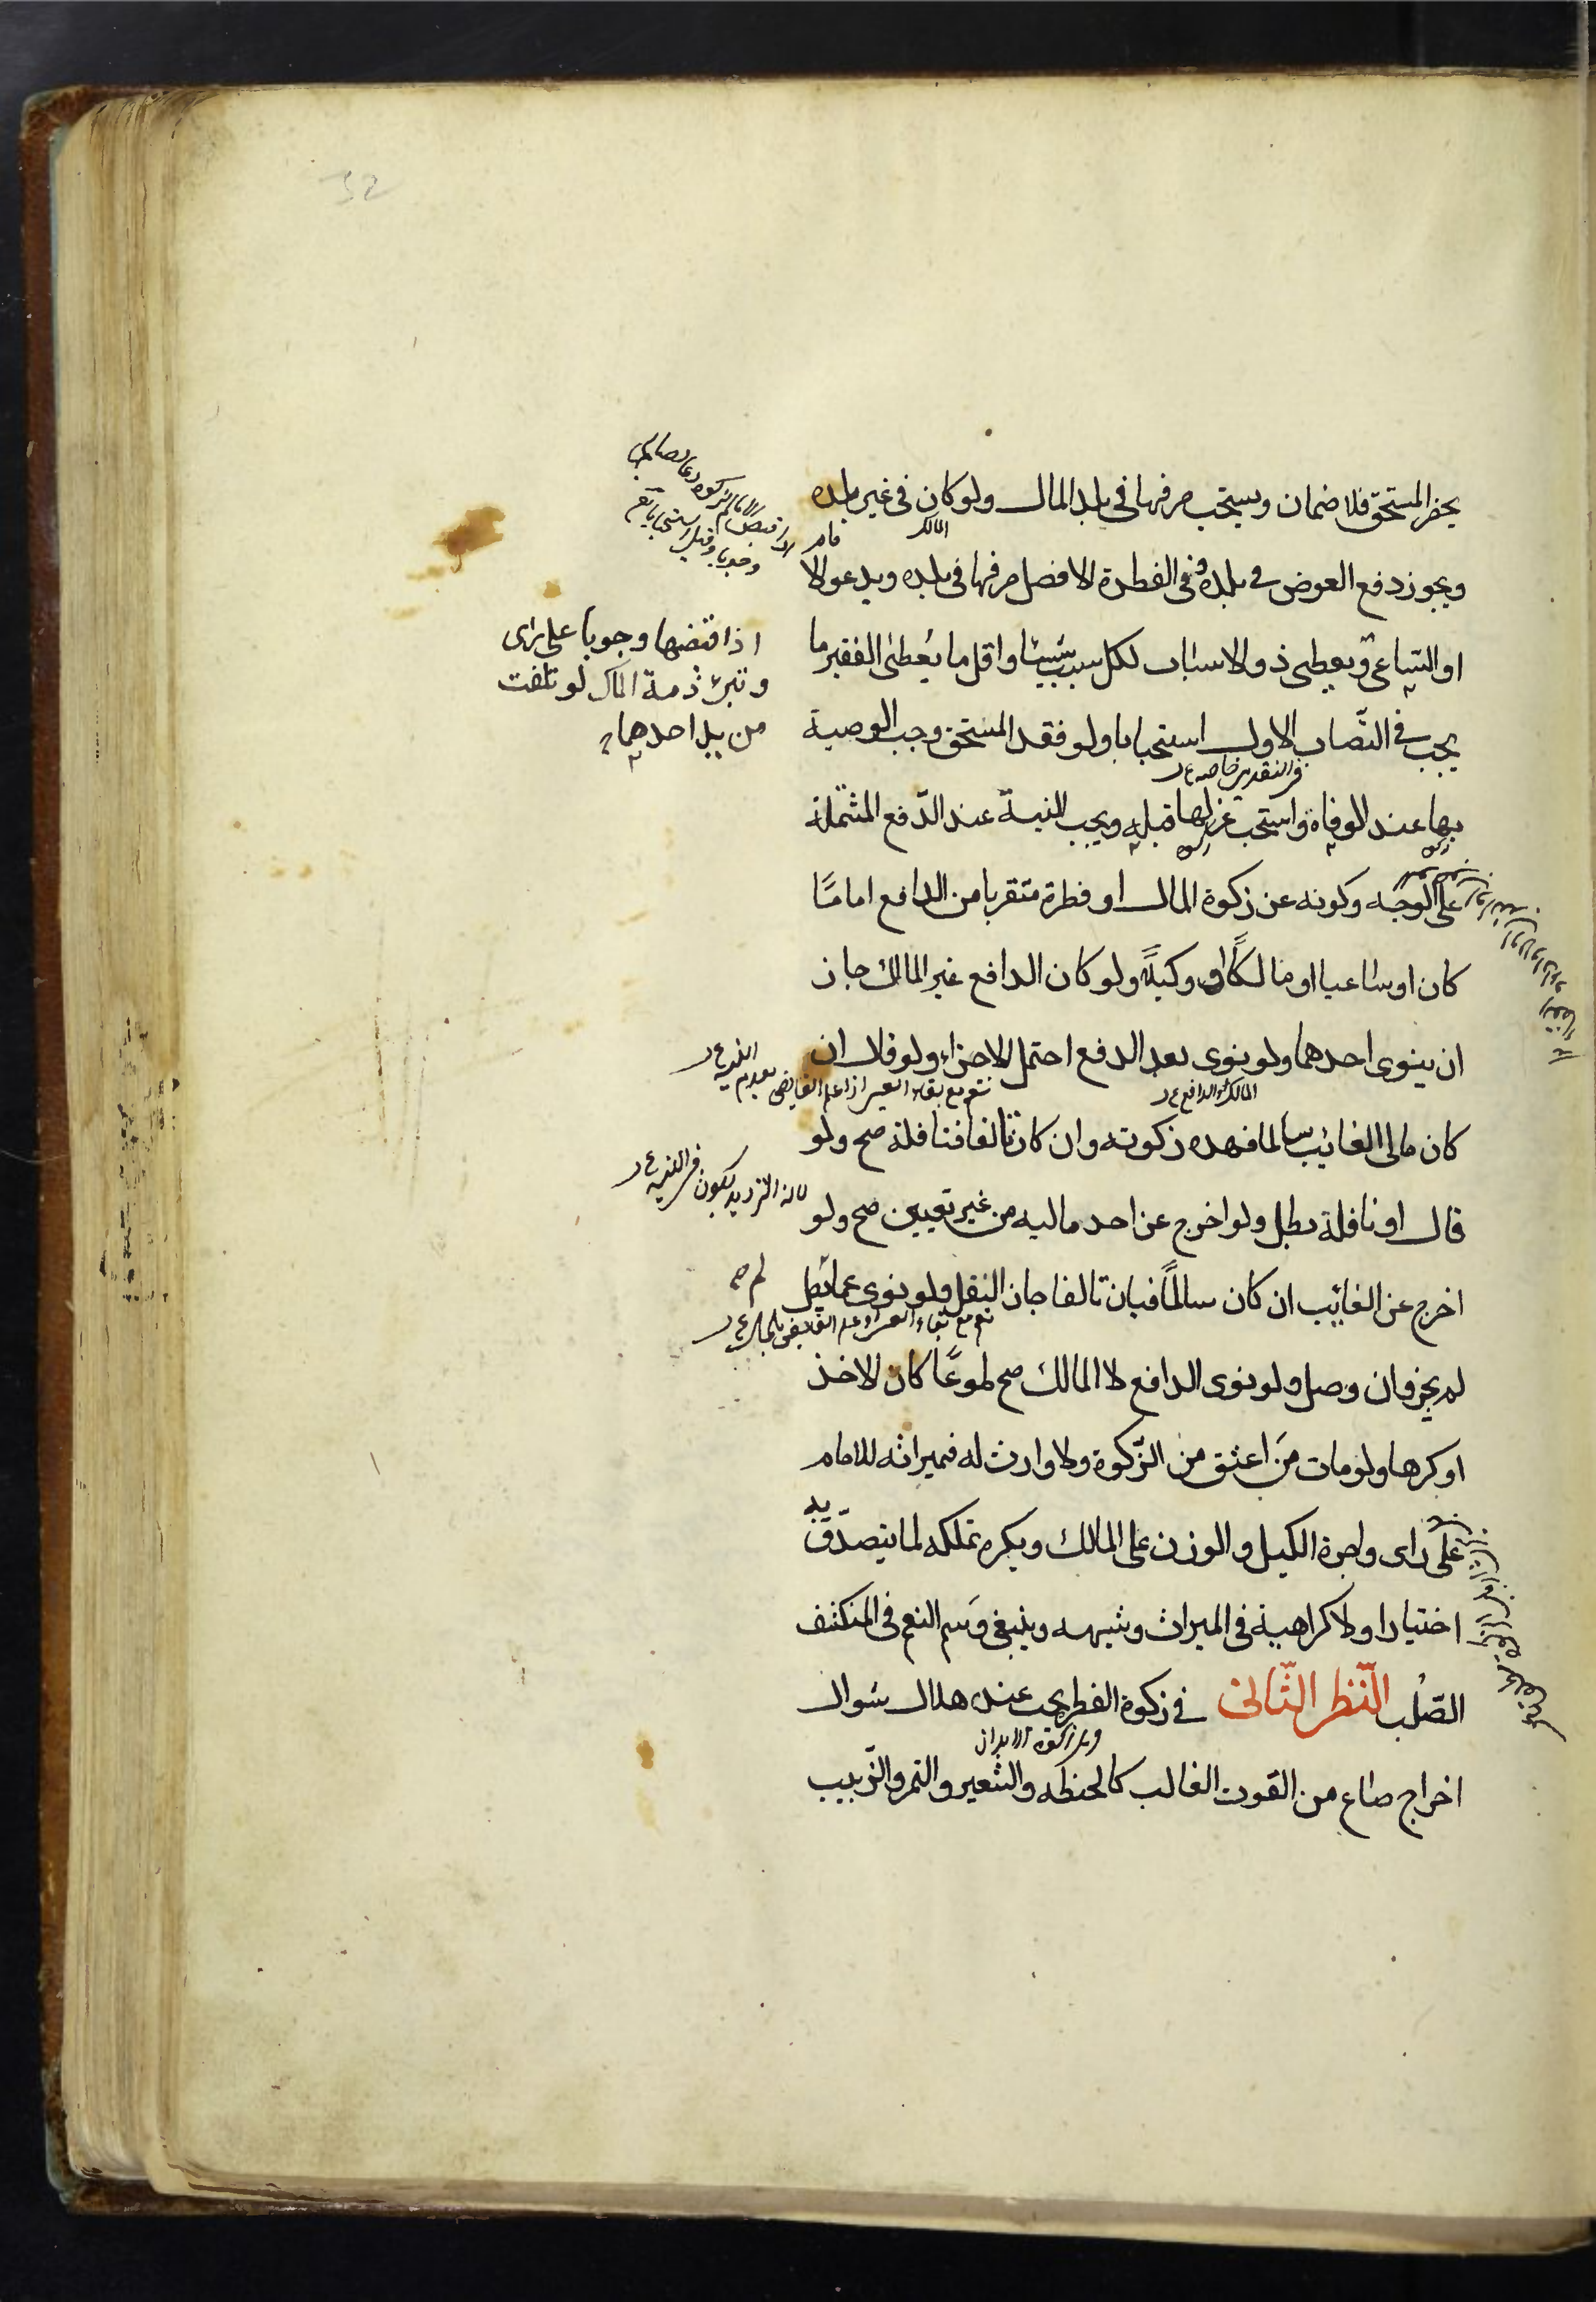 يحضر المستحق فلا ضمان ويستحب صرفها فى بلد المال ولو كان فى غير بلده
المالك
ويجوز دفع العوض فى بلده وفى الفطرة الافضل صرفها فى بلده ويدعو الا
مام
او الساعى ويعطى ذو الاسباب لكل سبب شيئا واقل ما يعطى الفقير ما
اذا قبضها وجوبا على راى
وتبرئ ذمة المالك لو تلفت
من يد احدهما
يجب فى النصاب الاول استحبابا ولو فقد المستحق وجب الوصية
فى النقدين خاصه
بها عند الوفاة واستحب عزلها قبله ويجب النية عند الدفع المشتملة
على الوجه وكونه عن زكوة المال او فطرة متقربا من الدافع اماما
كان او ساعيا او مالكا او وكيلا ولو كان الدافع غير المالك جاز
ان ينوى احدهما ولو نوى بعد الدفع احتمل الاجزاء ولو قال ان
المالك او الدافع
كان مالى الغائب سالما فهذه زكوته وان كان تالفا فنافلة صح ولو
لان الترديد يكون فى النية
قال او نافلة بطل ولو اخرج عن احد ماليه من غير تعيين صح ولو
اخرج عن الغائب ان كان سالما فبان تالفا جاز النقل ولو نوى عما يصل
لم يجز وان وصل ولو نوى الدافع لا المالك صح طوعا كان الاخذ
او كرها ولو مات من اعتق من الزكوة ولا وارث له فميراثه للامام
على راى واجرة الكيل والوزن على المالك ويكره تملكه لما يتصدق
به
اختيارا ولا كراهية فى الميراث وشبهه وينبغى وسم النعم فى المنكشف
الصلب النظر الثانى فى زكوة الفطر يجب عند هلال شوال
وهى زكوة الابدان
اخراج صاع من القوت الغالب كالحنطه والشعير والتمر والزبيب